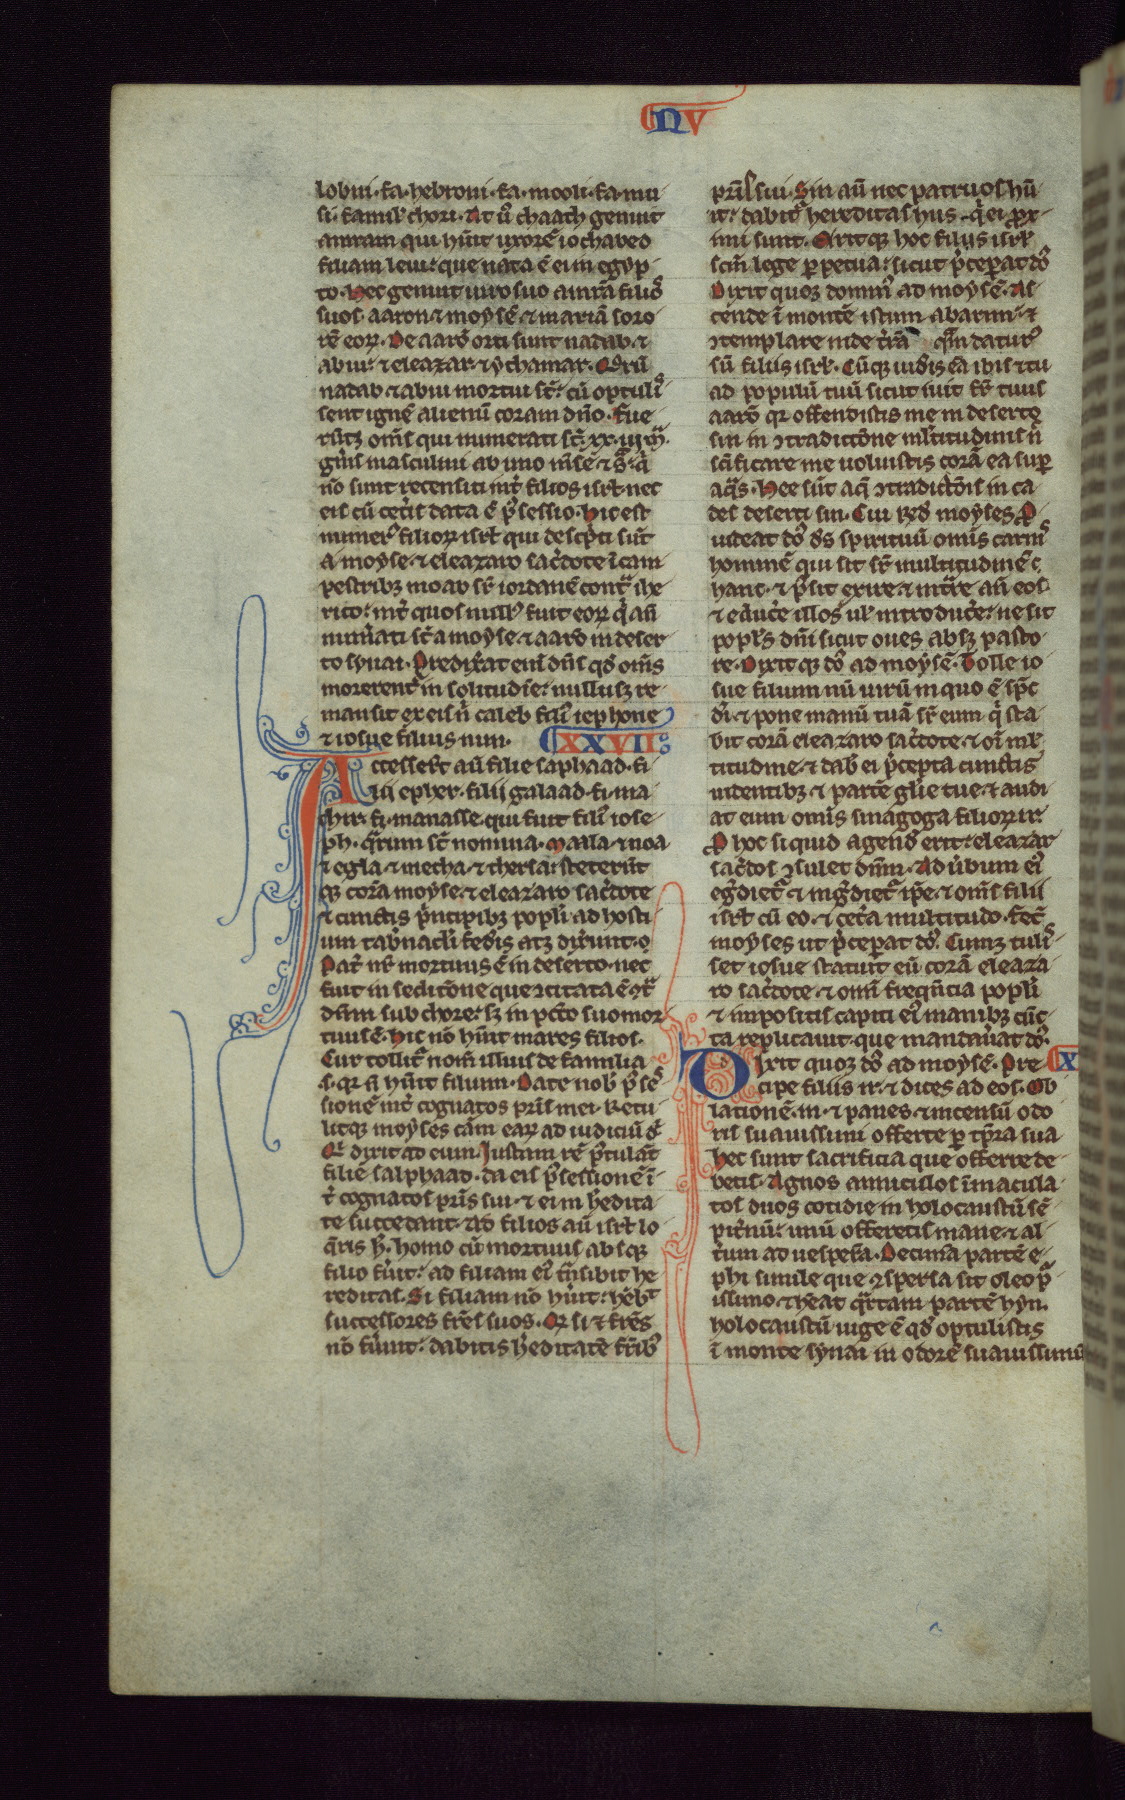 NV
lobni · fa · hebroni · fa · mooli · fa · mu
si · famil̄ chori · At ů chaath genuit
amram qui hūit uxorē iochabeo
filiam leui · que nata ē ei in egyp
to · Hec genuit uiro suo amrā filiͦs
suos aaron ⁊ moysē ⁊ mariā soro
rē eoꝝ · De aarō orti sunt nadab · ⁊
abiu · ⁊ eleazar · ⁊ ythamar · Quoꝝ
nadab ⁊ abiu mortui st̄ · cū optuliͣs
sent ignē alienū coram dn̄o · Fue
rūtqꝫ om̄s qui numerati st̄ · xx · iij · m̄ ·
gn̄is masculini ab uno m̄se ⁊ sͣ · qͥ
nō sunt recensiti int̄ filios isrl̄ · nec
eis cū cet̄is data ē pͦsessio · hic est
numerꝰ filioꝝ isrl̄ qui desc̄pti sūt
a moyse · ⁊ eleazaro sac̄dote ī cam
pestribꝫ moab sr̄ iordanē contͣ ihe
rico · int̄ quos nullꝰ fuit eoꝝ qͥ an̄
num̄ati st̄ a moyse · ⁊ aarō in deser
to synai · Predix̄at enī dn̄s qd̄ om̄s
morerentͬ in solitudīe · nullusqꝫ re
mansit ex eis n̄ caleb filī iephone
⁊ iosue filius nun · XXVII
Accesserūt aū filie saphaad · fi
lij epher · filij galaad · fi · ma
chir · fi · manasse · qui fuit filī iose
ph · qͣrum st̄ nomina · Maala · ⁊ noa
⁊ egla · ⁊ melcha · ⁊ thersa · steterūt
qꝫ corā moyse · ⁊ eleazaro sac̄dote
⁊ cunctis pͥncipibꝫ popl̄i ad hosti
um tab̄nacl̄i fed̄is atqꝫ dix̄unt ·
Pat̄ nr̄ mortuus ē in deserto · nec
fuit in seditōne que ↄcitata ē ↄtͣ
dn̄m sub chore · sꝫ in pctō suo mor
tuus ē · hic nō hūit mares filios ·
Cur tollitͬ nom̄ illius de familia
s · qꝛ n̄ hūit filium · Date nob̄ pͦsesͣ
sionē int̄ cognatos pr̄is mei · Retu
litqꝫ moyses cām eaꝝ ad iudiciū dī
Qͥ dixit ad eum · Iustam rē pͦstulāt
filie salphaad · da eis pͦsessionē ī
t̄ cognatos pr̄is sui · ⁊ ei in h̄edita
te succedant · Ad filios aū isrl̄ lo
qͣris h̄ · homo cū mortuus absqꝫ
filio fūit · ad filiam eiꝰ tͣnsibit he
reditas · Si filiam nō hūit · hēbt
successores fr̄es suos · Qꝛ si ⁊ fr̄es
nō fūint · dabitis h̄editatē fr̄ibꝰ
pr̄is sui · Sin aū nec patruos hū
it · dabitͬ hereditas hijs · qͥ ei prox
imi sunt · Eritqꝫ hoc filijs isrl̄
scm̄ lege ꝑpetua · sicut pͣcepat dō
Dixit quoqꝫ dominꝰ ad moysē · As
cende ī montē istum abarim · ⁊
ↄtemplare inde t̄rā qͣm daturꝰ
sū filijs isrl̄ · Cūqꝫ uid̄is eā ibis ⁊ tu
ad populū tuū sicut iuit fr̄ tuus
aarō qꝛ offendistis me in deserto
sin in ↄtradictōne ml̄titudinis n̄
sc̄ificare me uoluistis corā ea suꝑ
aqͣs · Hee sūt aqͤ ↄtradictōis in ca
des deserti sin · Cui r̄nd̄ moyses · Pͦ
uideat dō ds̄ spirituū omīs carniͣs
hominē qui sit sr̄ multitudinē
hanc · ⁊ pͦsit exire ⁊ int̄re an̄ eos
⁊ educ̄e illos ul̄ introduc̄e · ne sit
popl̄s dn̄i sicut oues absqꝫ pasto
re · Dixitqꝫ dō ad moysē · Tolle io
sue filium nū uirū in quo ē sp̄c
dī · ⁊ pone manū tuā sr̄ eum · qͥ sta
bit corā eleazaro sac̄dote · ⁊ oī ml̄
titudine · ⁊ dab̄ ei pͣcepta cunctis
uidentibꝫ · ⁊ partē gl̄ie tue · ⁊ audi
at eum om̄is sinagoga filioꝝ ir̄ ·
Pͦ hoc si quid agend̄ erit · eleazar
sac̄dos ↄsulet dn̄m · Ad ūbum eiꝰ
egͣdietͬ ⁊ ingͣdietͬ ip̄e · ⁊ om̄s filij
isrl̄ cū eo · ⁊ cet̄a multitudo · Fec̄
moyses ut pͣcepat dō · Cumqꝫ tuliͣ
set iosue statuit eū corā eleaza
ro sac̄dote · ⁊ omī freqn̄cia popl̄i
⁊ impositis capiti eiꝰ manibꝫ cūc
ta replicauit · que mandaūat dō ·
Dixit quoqꝫ dō ad moysē · Pre X
cipe filijs ir̄ · ⁊ dices ad eos · Ob
lationē · m · ⁊ panes · ⁊ incensū odo
ris suauissimi offerte ꝑ tp̄ra sua
hec sunt sacrificia que offerre de
betis · Agnos anniculos īmacula
tos duos cotidie in holocaustū sē
pit̄nū · unū offeretis mane · ⁊ al
t̄um ad uespera · Decimā partē e
phi simile que ↄspersa sit oleo pͥ
issimo · ⁊ hēat qͣrtam partē hyn ·
holocaustū iuge ē qd̄ optulistis
ī monte synai in odorē suauissimū